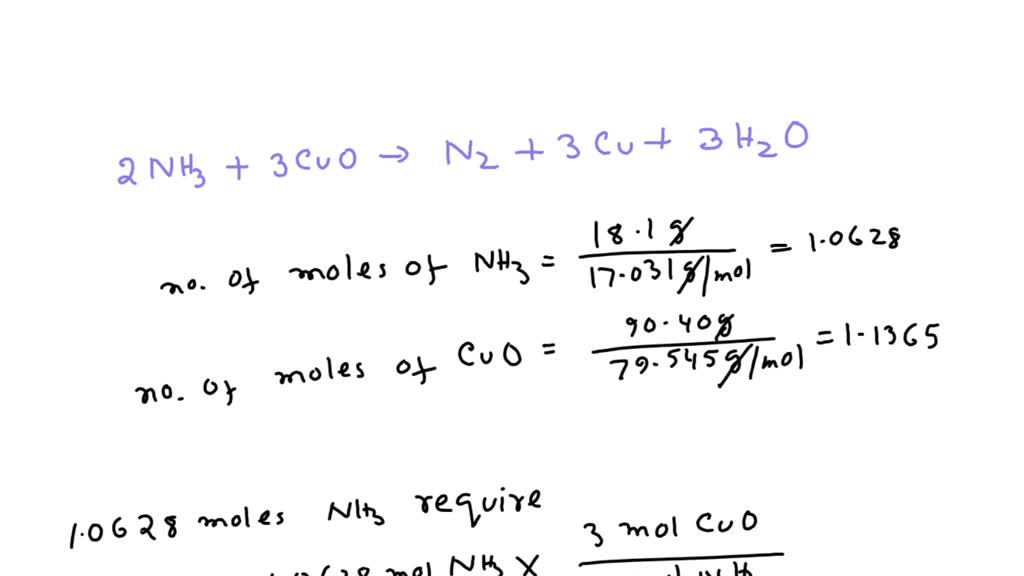 2NH3 + 3CuO → N2 + 3Cu + 3H2O
no. of moles of NH3 = 18.1 g / 17.031 g/mol = 1.0628
no. of moles of CuO = 90.40 g / 79.545 g/mol = 1.1365
1.0628 moles NH3 require
mol NH3 × 3 mol CuO